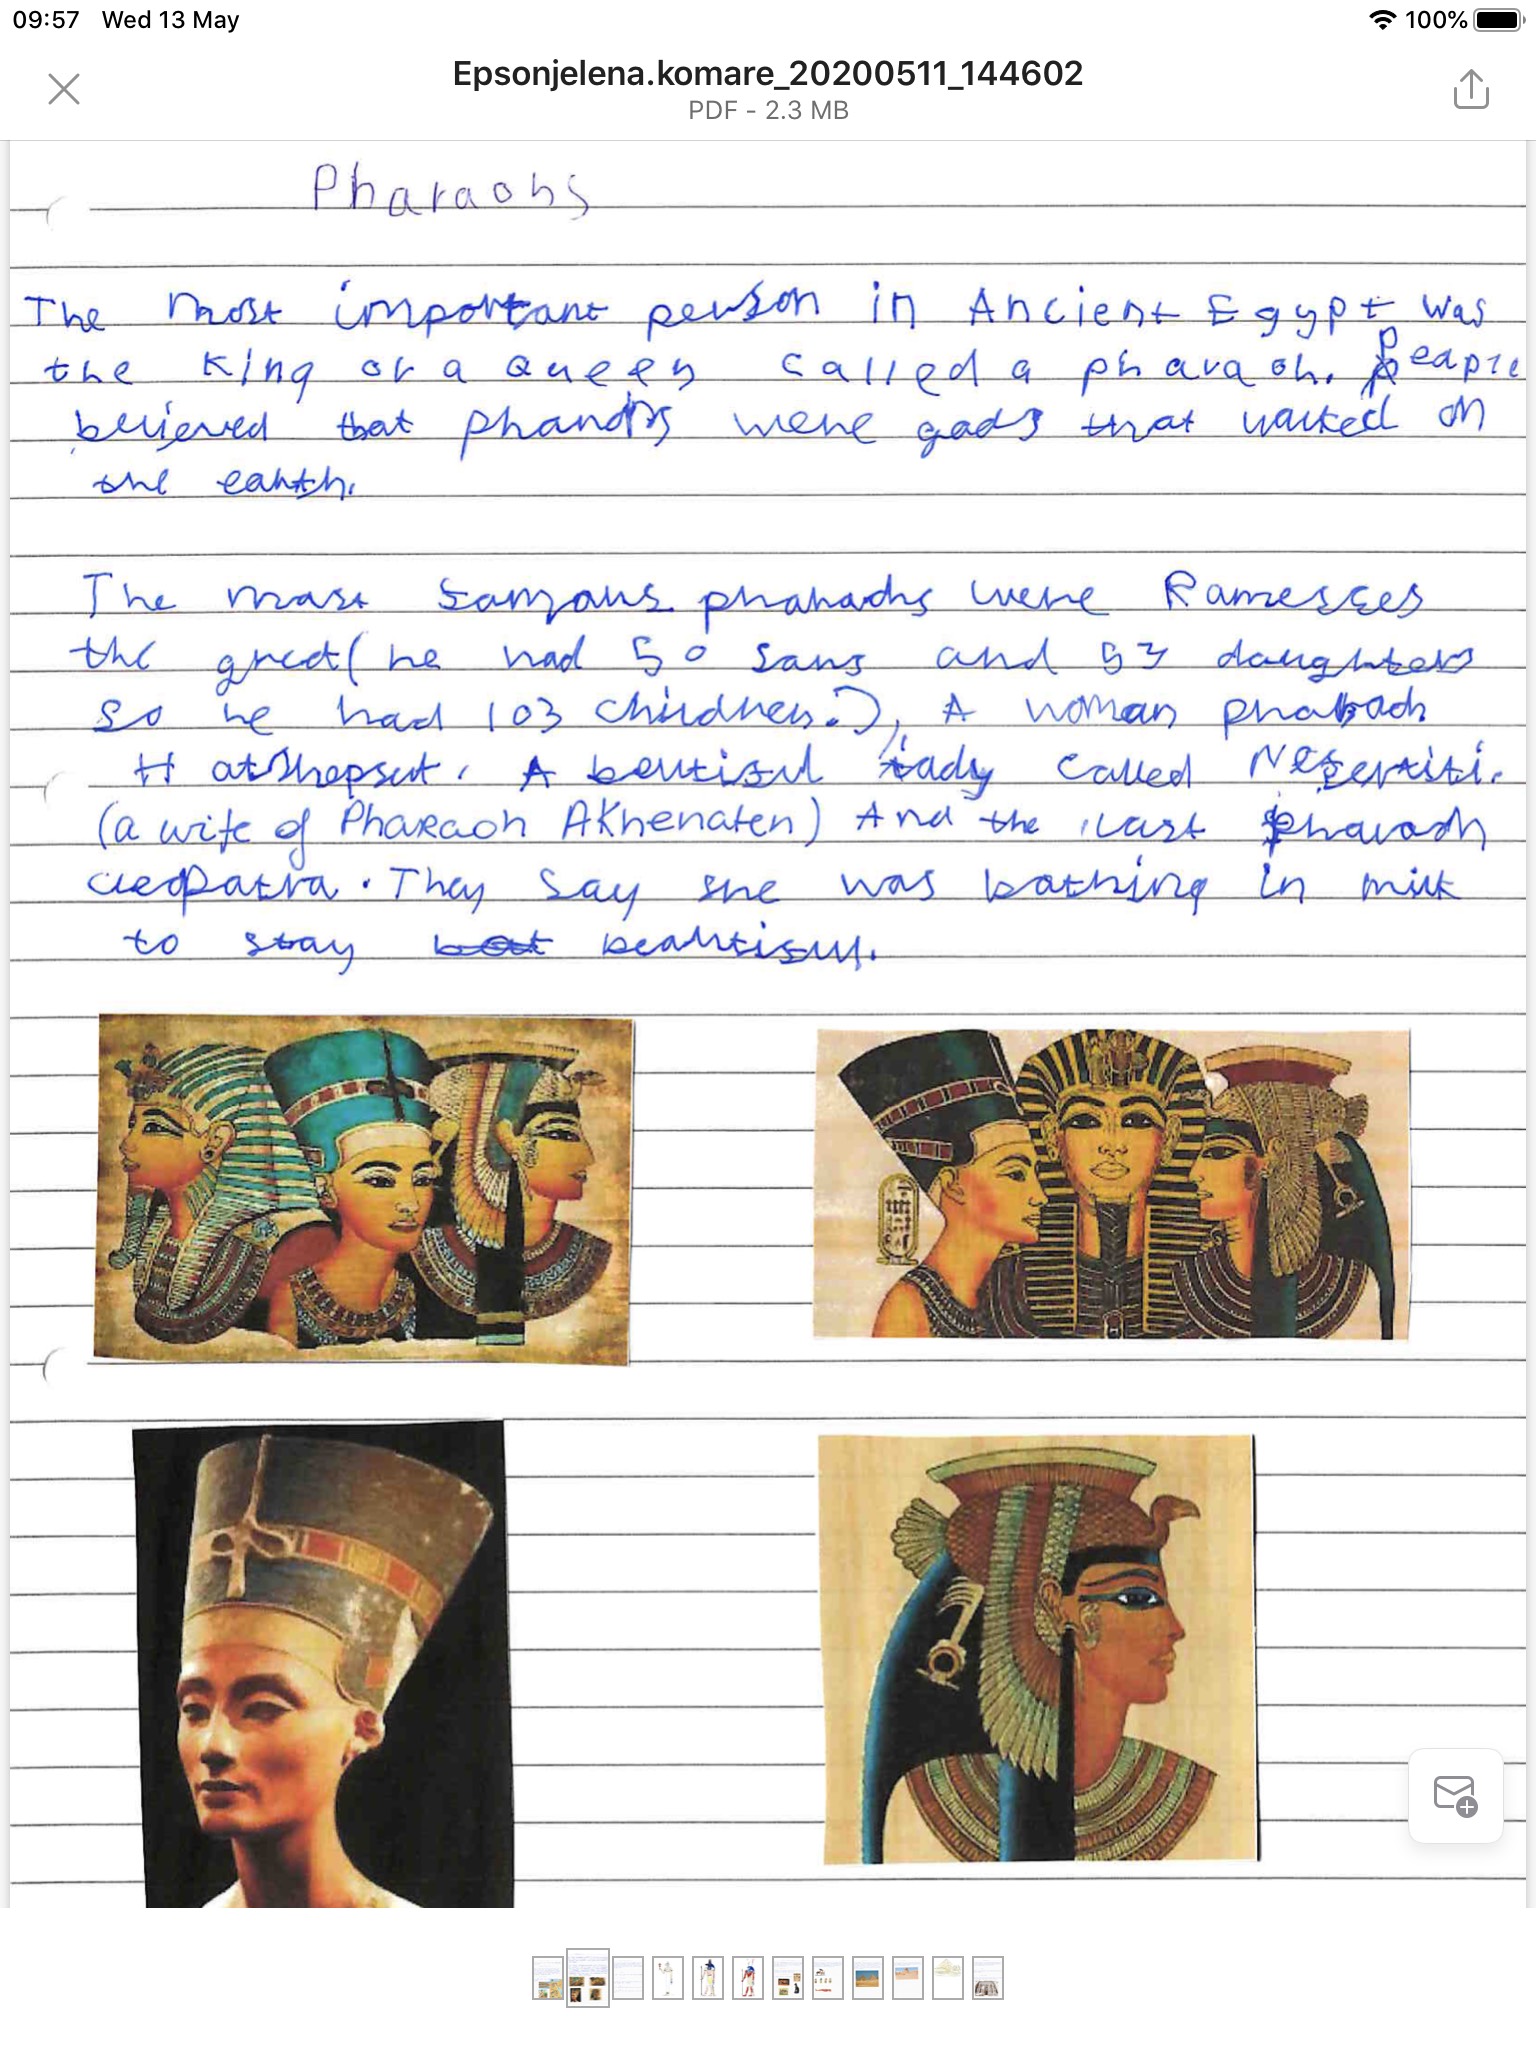 09:57 Wed 13 May 100%
Epsonjelena.komare_20200511_144602
PDF - 2.3 MB
Pharaohs
The most important person in Ancient Egypt was
the King or a Queen called a pharaoh. People
believed that were gods that walked on
the earth.
The most famous pharaohs were Ramesses
the great (he had 50 sons and 53 daughters
so he had 103 children.), A woman pharaoh
Hatshepsut. A beutiful lady called Nefertiti.
(a wife of Pharaoh Akhenaten) And the last pharaoh
cleopatra. They say she was bathing in milk
to stay beautiful.